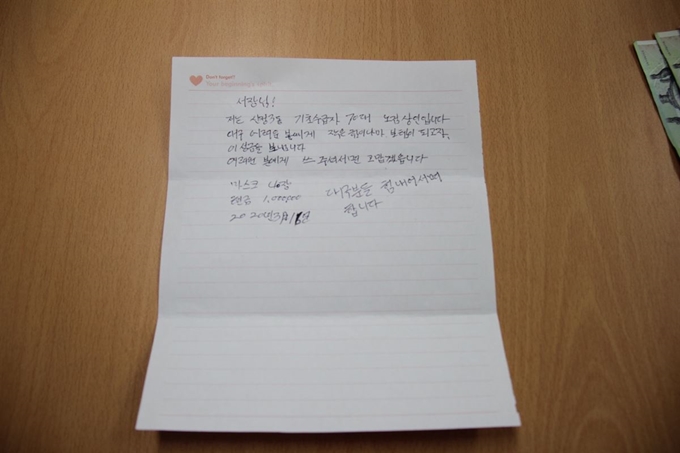 Don't forget!
서장님!
저는 신발3동 기초수급자 70대 노점상인입니다
대구 어려운 분에게 작은 힘이나마 보탬이 되고자,
이 성금을 보냅니다
어려운 분에게 쓰 주셔서면 고맙겠습니다
마스크 4장
현금 1,000,000
2020년3월
대구분들 힘내어서면
합니다